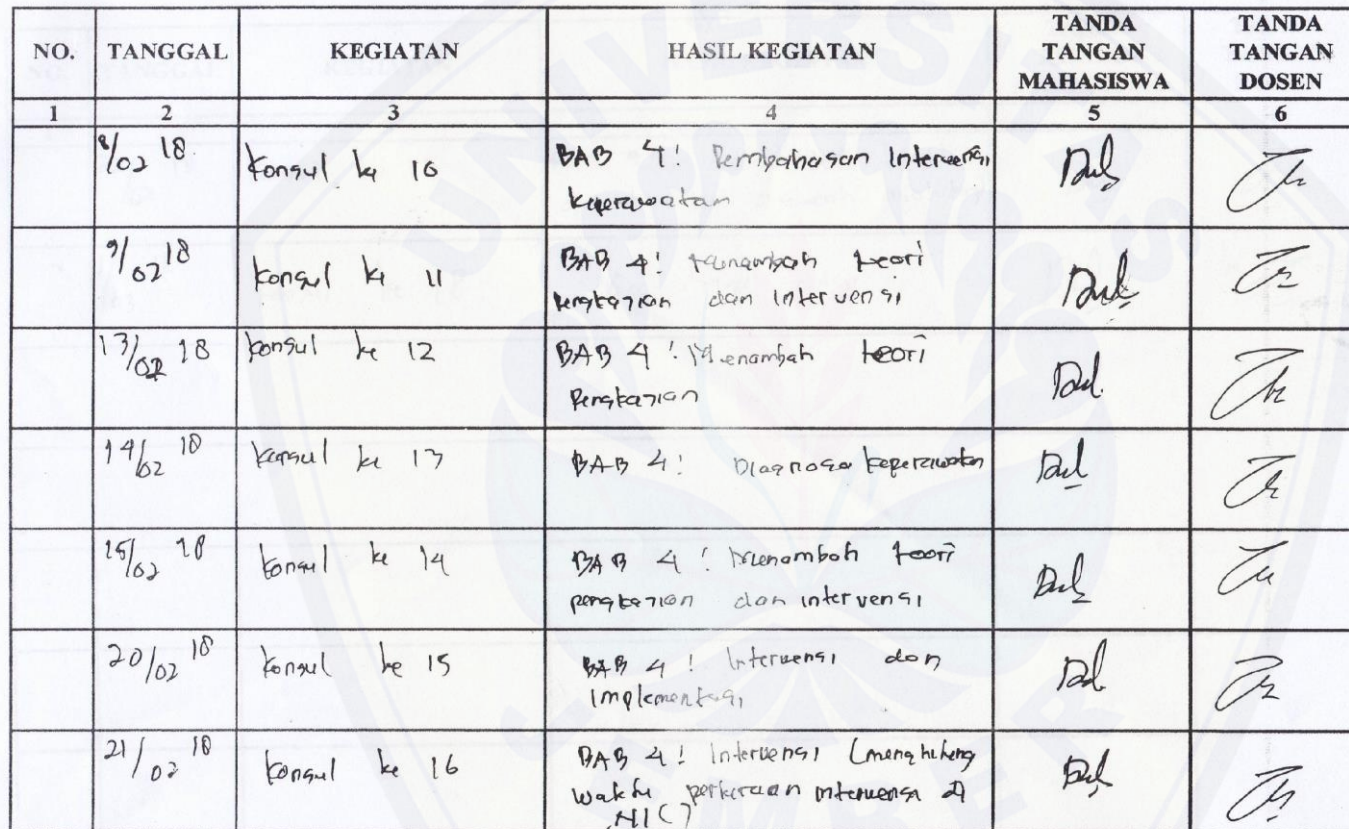 NO. TANGGAL KEGIATAN HASIL KEGIATAN TANDA TANGAN MAHASISWA TANDA TANGAN DOSEN
1 2 3 4 5 6
8/02 18 konsul ke 10 BAB 4: Pembahasan Intervensi
keperawatan
9/02 18 konsul ke 11 BAB 4: Menambah teori
pengkajian dan intervensi
13/02 18 konsul ke 12 BAB 4: Menambah teori
Pengkajian
14/02 18 konsul ke 13 BAB 4: Diagnosa keperawatan
15/02 18 konsul ke 14 BAB 4: Menambah teori
pengkajian dan intervensi
20/02 18 konsul ke 15 BAB 4: Intervensi dan
Implementasi
21/02 18 konsul ke 16 BAB 4: Intervensi (menghitung
waktu perkiraan intervensi di
NIC)
UNIVERSITAS
JEMBER